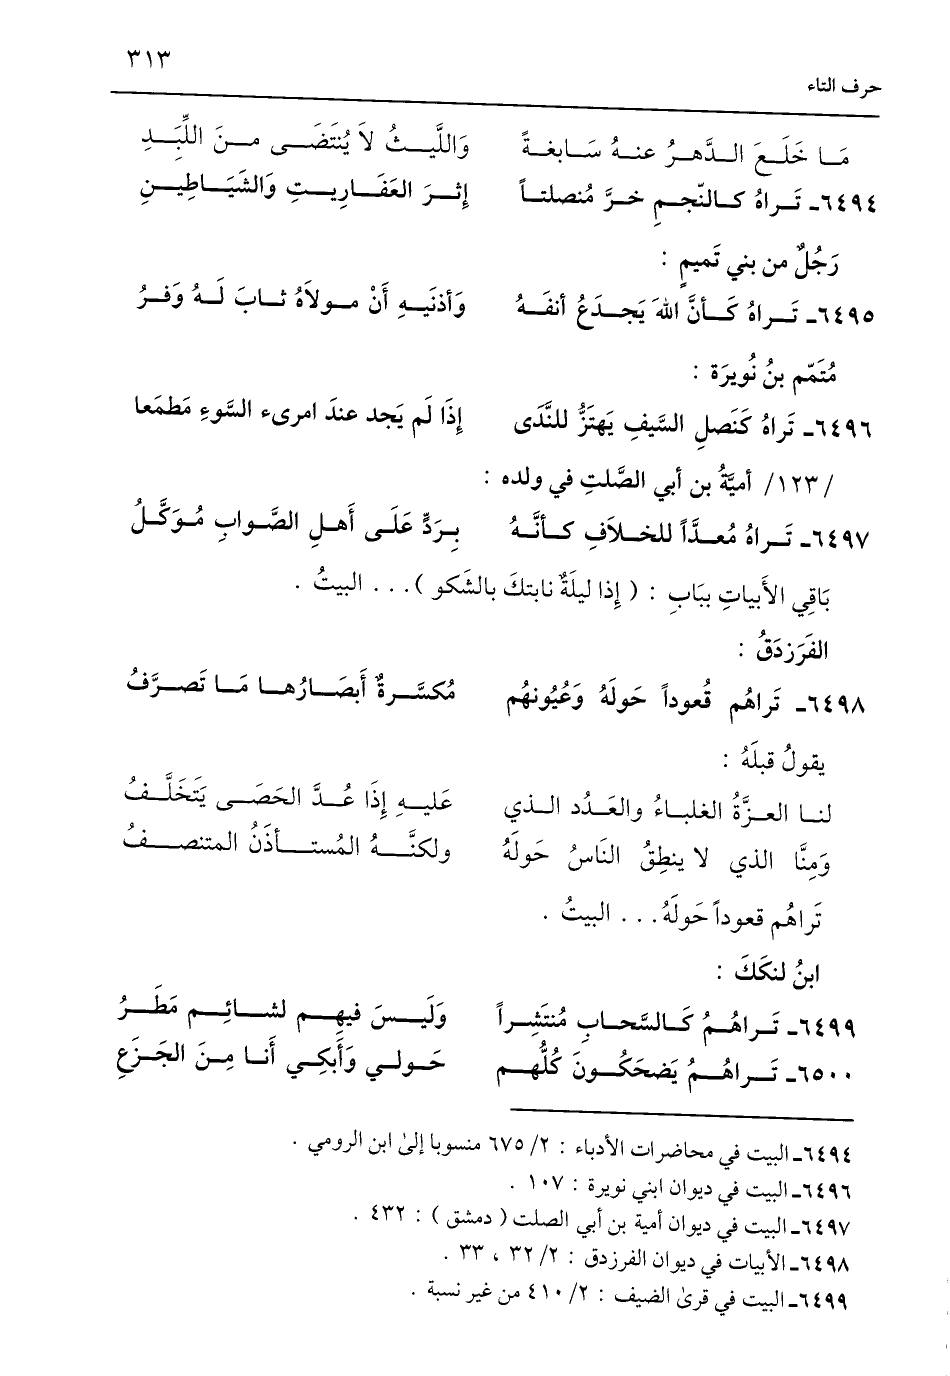 ٣١٣
حرف التاء
مَا خَلَعَ الدَّهرُ عنهُ سَابغةً وَاللَّيثُ لاَ يُنتَضَى منَ اللِّبَدِ
٦٤٩٤ـ تَراهُ كالنّجمِ خرَّ مُنصلتاً إثرَ العَفَارِيتِ وَالشَيَاطِينِ
رَجُلٌ من بني تَميمٍ :
٦٤٩٥ـ تَراهُ كَأنَّ اللهَ يَجدَعُ أنفَهُ وَأذنَيهِ أَنْ مولاَهُ ثابَ لَهُ وَفرُ
مُتَمّم بنُ نُويرَة :
٦٤٩٦ـ تَراهُ كَنَصلِ السَّيفِ يَهتَزُّ للنَّدَى إذَا لَم يَجد عندَ امرىء السَّوءِ مَطمَعا
/ ١٢٣/ أميَّةُ بن أبي الصَّلتِ في ولده :
٦٤٩٧ـ تَراهُ مُعدَّاً للخلاَفِ كأنَّهُ بِرَدٍّ عَلَى أَهلِ الصَّوابِ مُوَكَّلُ
بَاقِي الأَبياتِ ببَابِ : ( إذا ليلَةٌ نابتكَ بالشَكو ) . . . البيتُ .
الفَرَزدَقُ :
٦٤٩٨ـ تَراهُم قُعوداً حَولَهُ وَعُيُونهُم مُكسَّرةٌ أَبصَارُها مَا تَصرَّفُ
يقولُ قبلَهُ :
لنا العزَّةُ الغلباءُ والعَدُد الذي عَليهِ إذَا عُدَّ الحَصَى يَتَخَلَّفُ
وَمِنَّا الذي لا ينطِقُ النَاسُ حَولَهُ ولكنَّهُ المُستأذَنُ المتنصفُ
تَراهُم قعوداً حَولَهُ . . . البيتُ .
ابنُ لنكَكَ :
٦٤٩٩ـ تَراهُمُ كَالسَّحابِ مُنتَشِراً وَلَيسَ فيهِم لشائِم مَطَرُ
٦٥٠٠ـ تَراهُمُ يَضحَكُونَ كُلُّهم حَولي وَأَبكِي أَنا مِنَ الجَزَعِ
٦٤٩٤ـ البيت في محاضرات الأدباء : ٢/ ٦٧٥ منسوبا إلىٰ ابن الرومي .
٦٤٩٦ـ البيت في ديوان ابني نويرة : ١٠٧ .
٦٤٩٧ـ البيت في ديوان أمية بن أبي الصلت ( دمشق ) : ٤٣٢ .
٦٤٩٨ـ الأبيات في ديوان الفرزدق : ٢/ ٣٢ ، ٣٣ .
٦٤٩٩ـ البيت في قرىٰ الضيف : ٢/ ٤١٠ من غير نسبة .